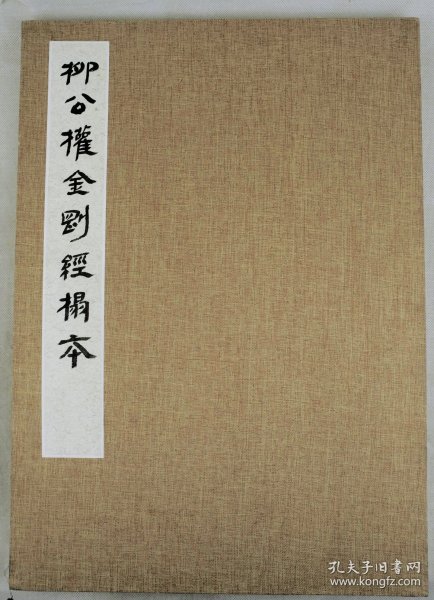 柳公權金剛經搨本
孔夫子旧书网
www.kongfz.com